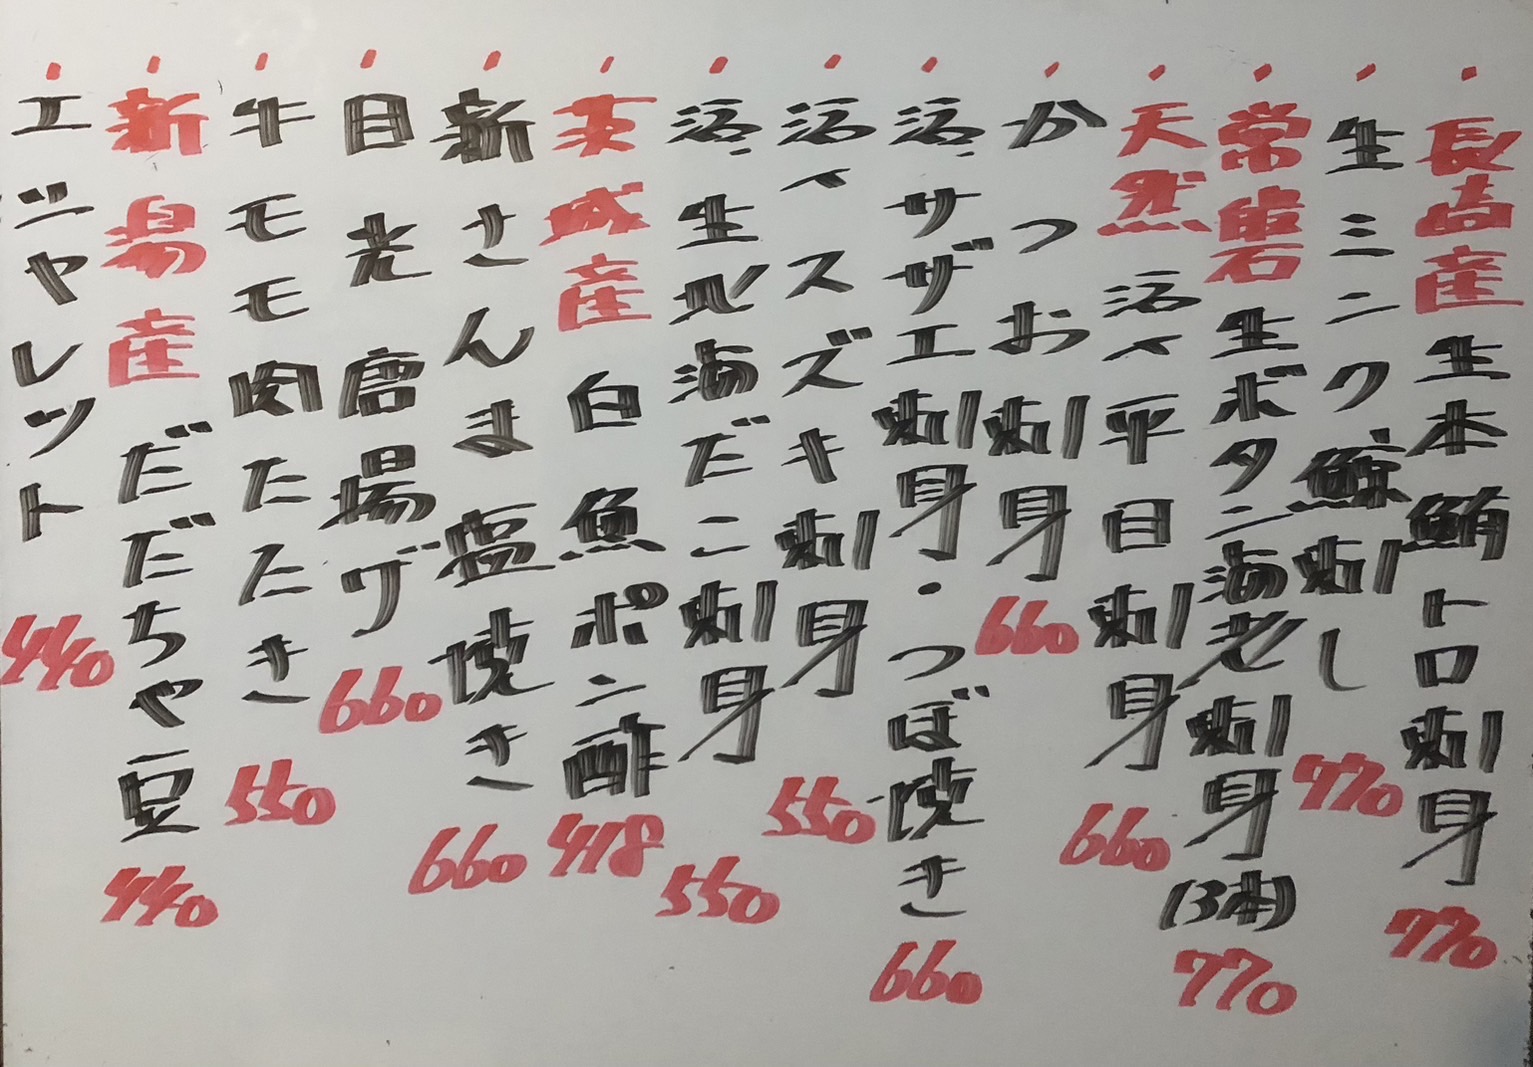 長崎産生本鮪トロ刺身 770
生ミンク鯨刺し 770
常磐生ボタン海老刺身(3本) 770
天然活〆平目刺身 660
かつお刺身 660
活〆サザエ刺身・つぼ焼き 660
活〆スズキ刺身 550
活〆生北海だこ刺身 550
茨城産白魚ポン酢 418
新さんま塩焼き 660
目光唐揚げ 660
牛モモ肉たたき 550
新潟産だだちゃ豆 440
エシャレット 440